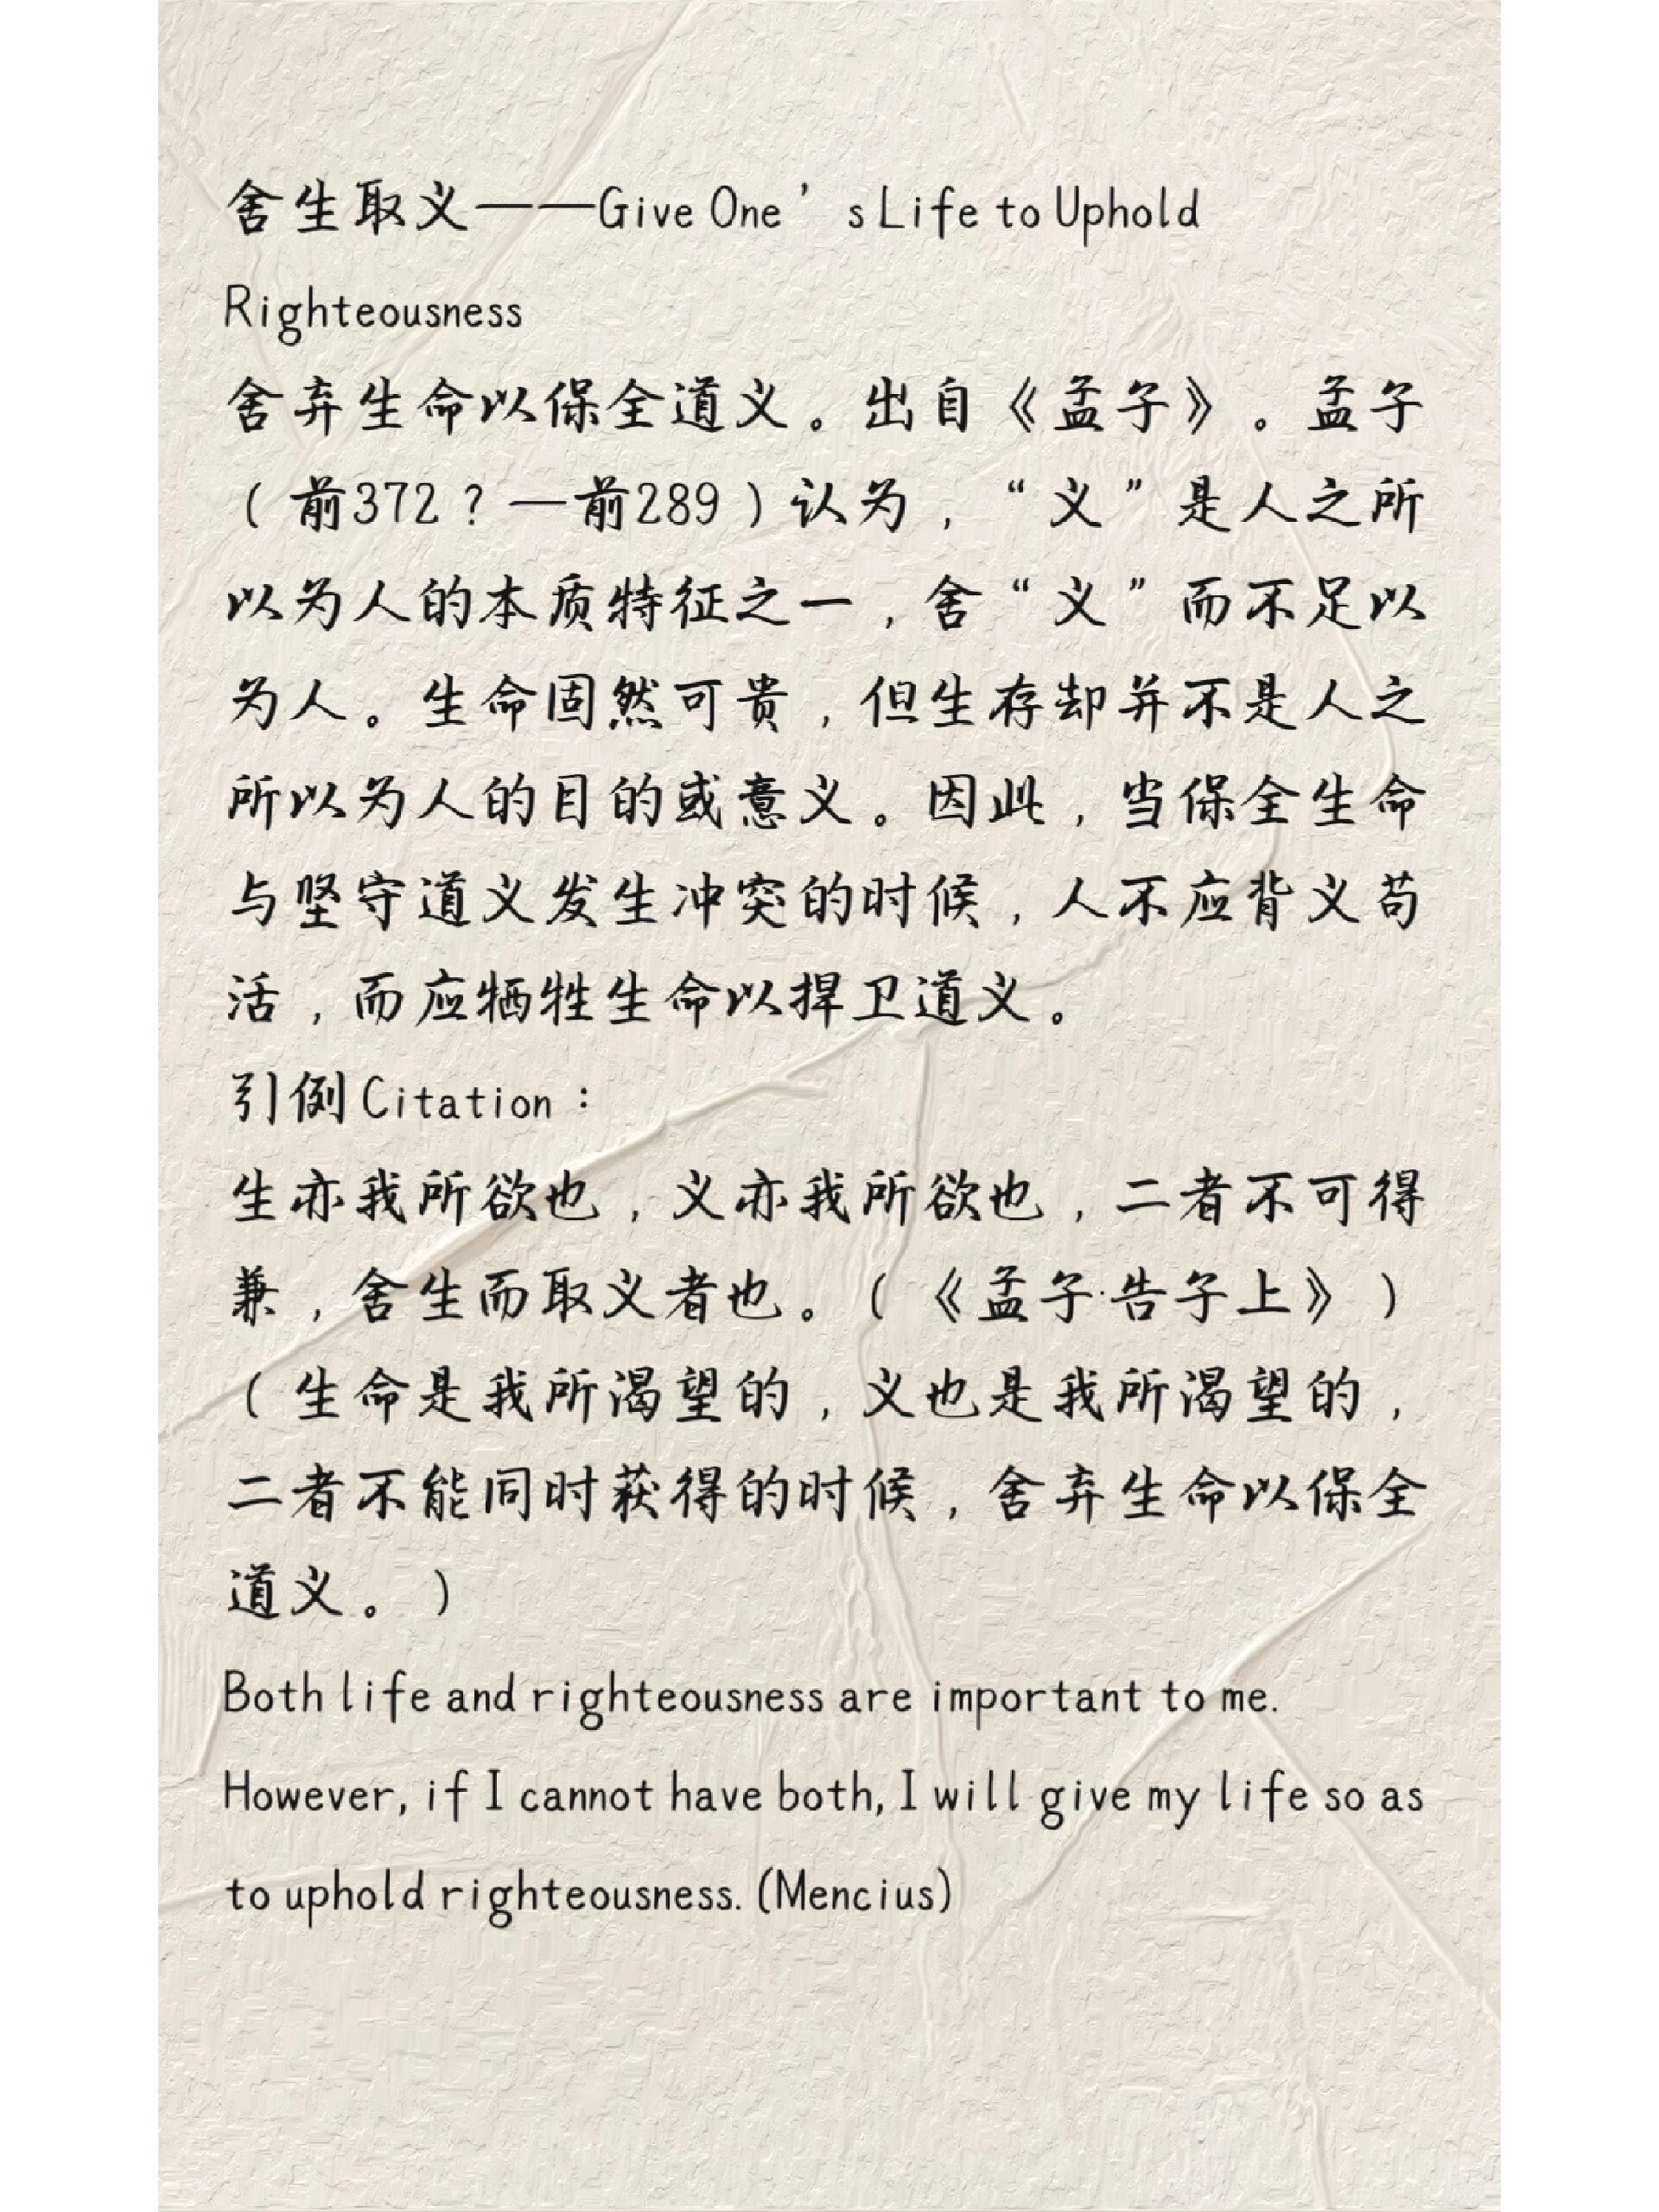 舍生取义——Give One’s Life to Uphold
Righteousness
舍弃生命以保全道义。出自《孟子》。孟子
（前372？—前289）认为，“义”是人之所
以为人的本质特征之一，舍“义”而不足以
为人。生命固然可贵，但生存却并不是人之
所以为人的目的或意义。因此，当保全生命
与坚守道义发生冲突的时候，人不应背义苟
活，而应牺牲生命以捍卫道义。
引例Citation：
生亦我所欲也，义亦我所欲也，二者不可得
兼，舍生而取义者也。（《孟子·告子上》）
（生命是我所渴望的，义也是我所渴望的，
二者不能同时获得的时候，舍弃生命以保全
道义。）
Both life and righteousness are important to me.
However, if I cannot have both, I will give my life so as
to uphold righteousness. (Mencius)